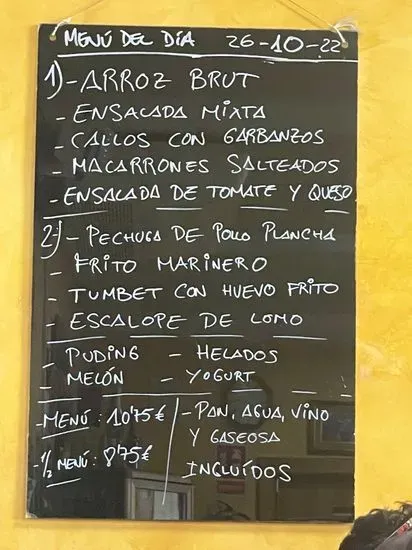 MENÚ DEL DÍA 26-10-22
1)- ARROZ BRUT
- ENSALADA MIXTA
- CALLOS CON GARBANZOS
- MACARRONES SALTEADOS
- ENSALADA DE TOMATE Y QUESO
2)- PECHUGA DE POLLO PLANCHA
- FRITO MARINERO
- TUMBET CON HUEVO FRITO
- ESCALOPE DE LOMO
- PUDING - HELADOS
- MELÓN - YOGURT
- MENÚ: 10'75€
- 1/2 MENÚ: 8'75€
- PAN, AGUA, VINO
Y GASEOSA
INCLUÍDOS